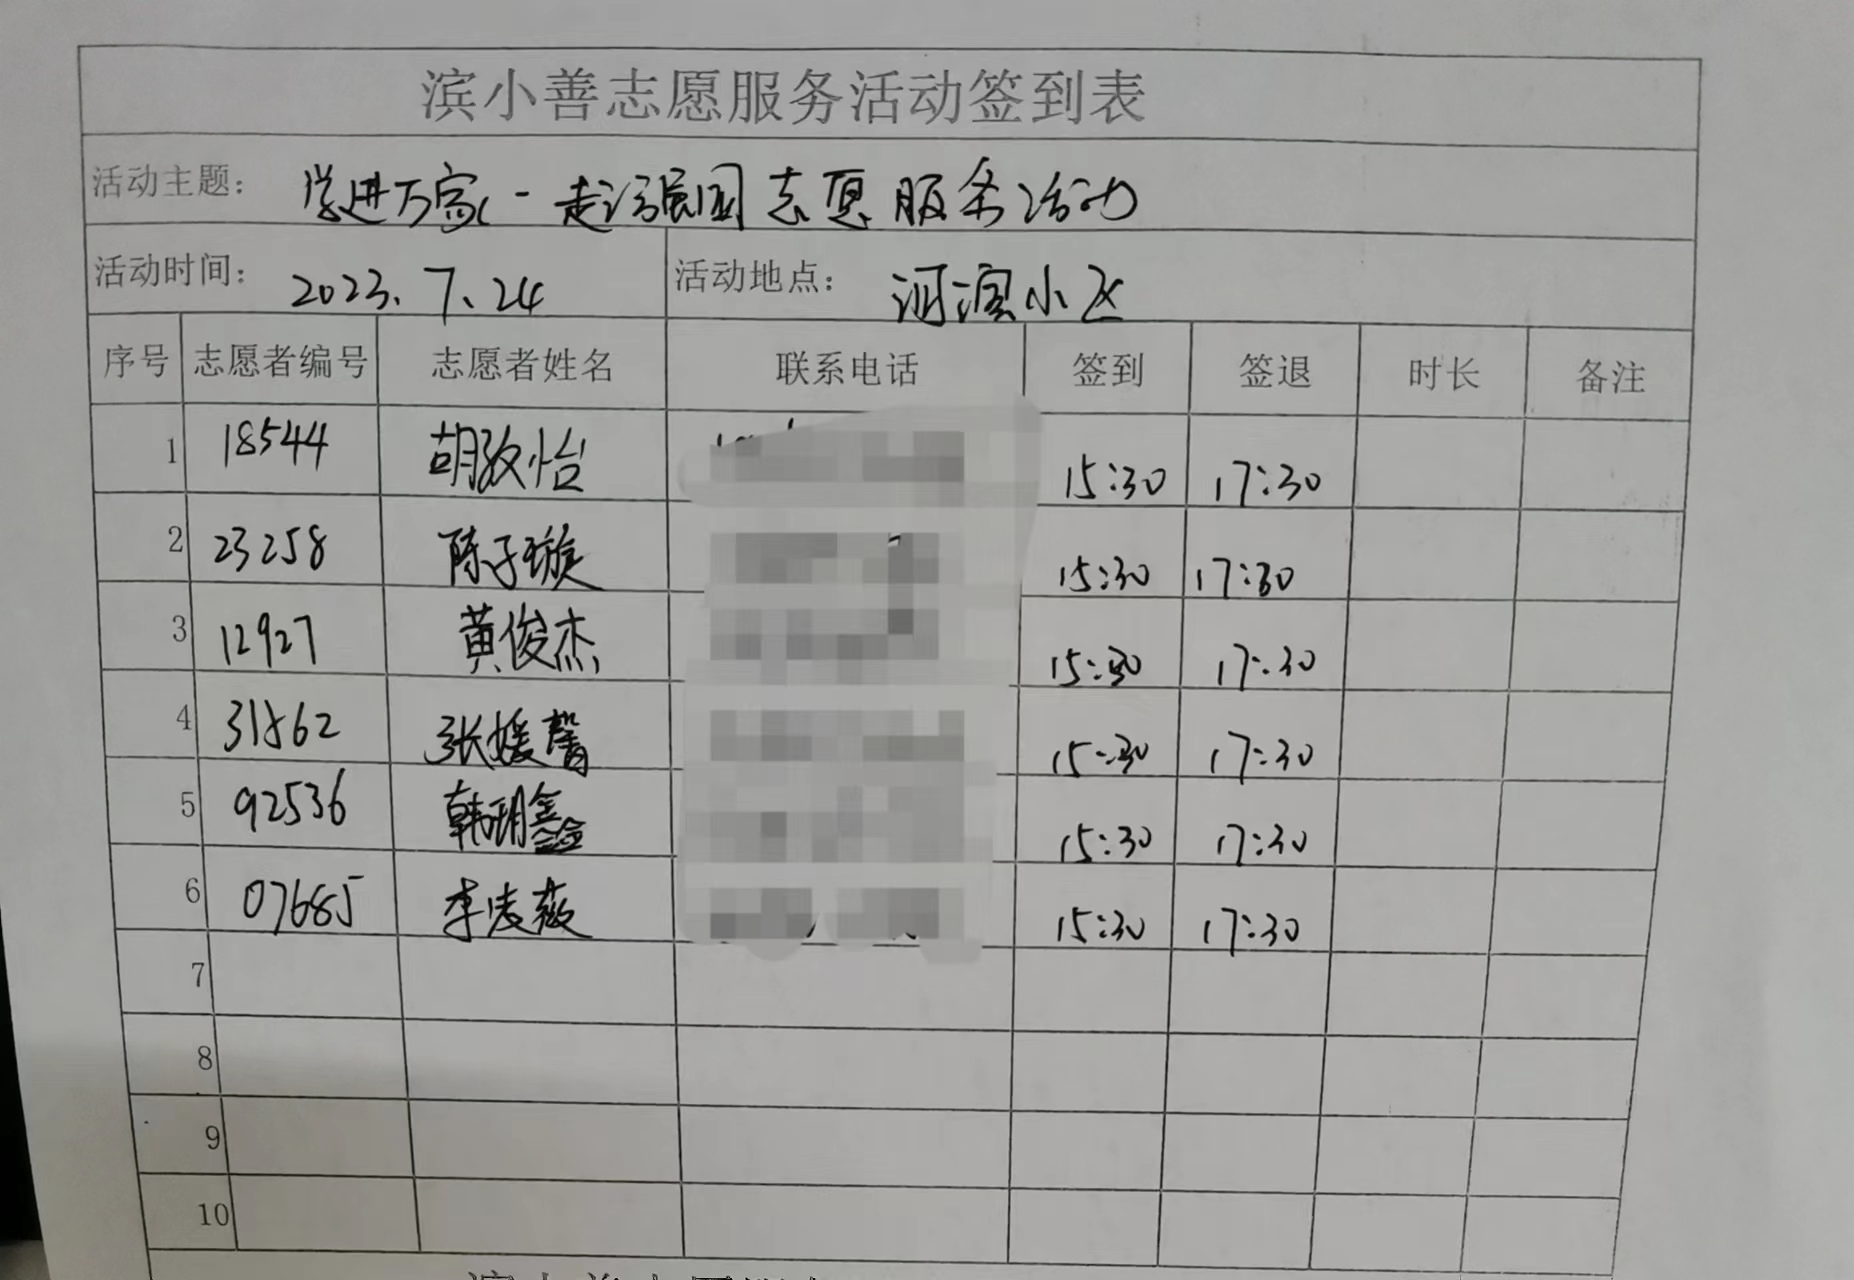 滨小善志愿服务活动签到表
活动主题： 学进万家 一起强国志愿服务活动
活动时间： 2023.7.24 活动地点： 河滨小区
序号 志愿者编号 志愿者姓名 联系电话 签到 签退 时长 备注
1 18544 胡孜怡 15:30 17:30
2 23258 陈子璇 15:30 17:30
3 12927 黄俊杰 15:30 17:30
4 31862 张媛馨 15:30 17:30
5 92536 韩玥鑫 15:30 17:30
6 07685 李凌薇 15:30 17:30
7
8
9
10